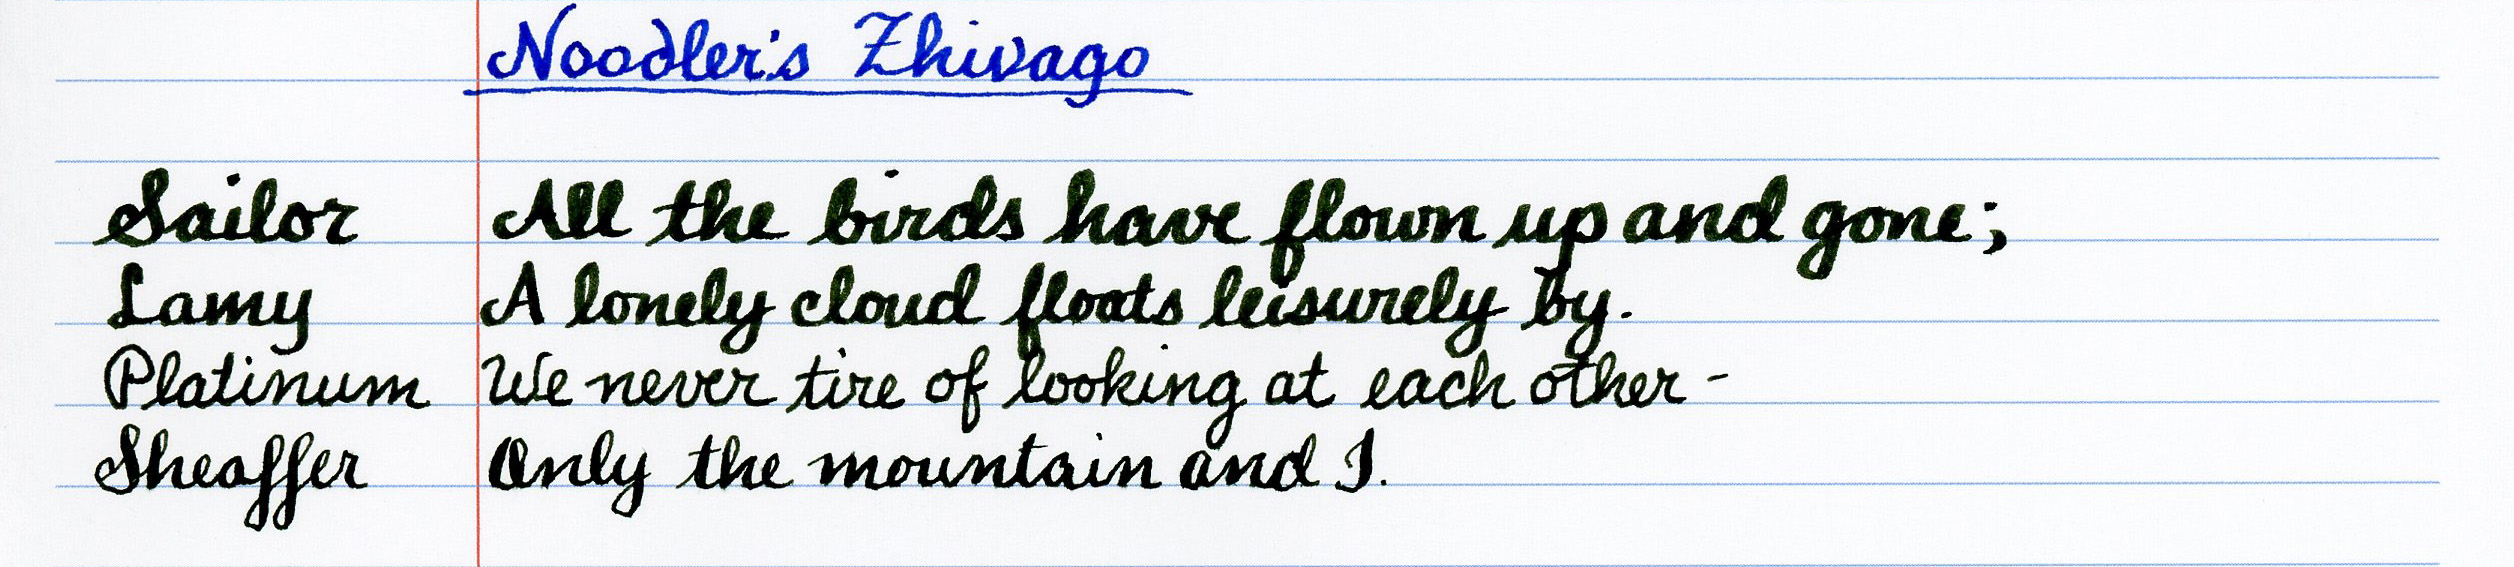 Noodler's Zhivago
Sailor All the birds have flown up and gone;
Lamy A lonely cloud floats leisurely by.
Platinum We never tire of looking at each other -
Sheaffer Only the mountain and I.